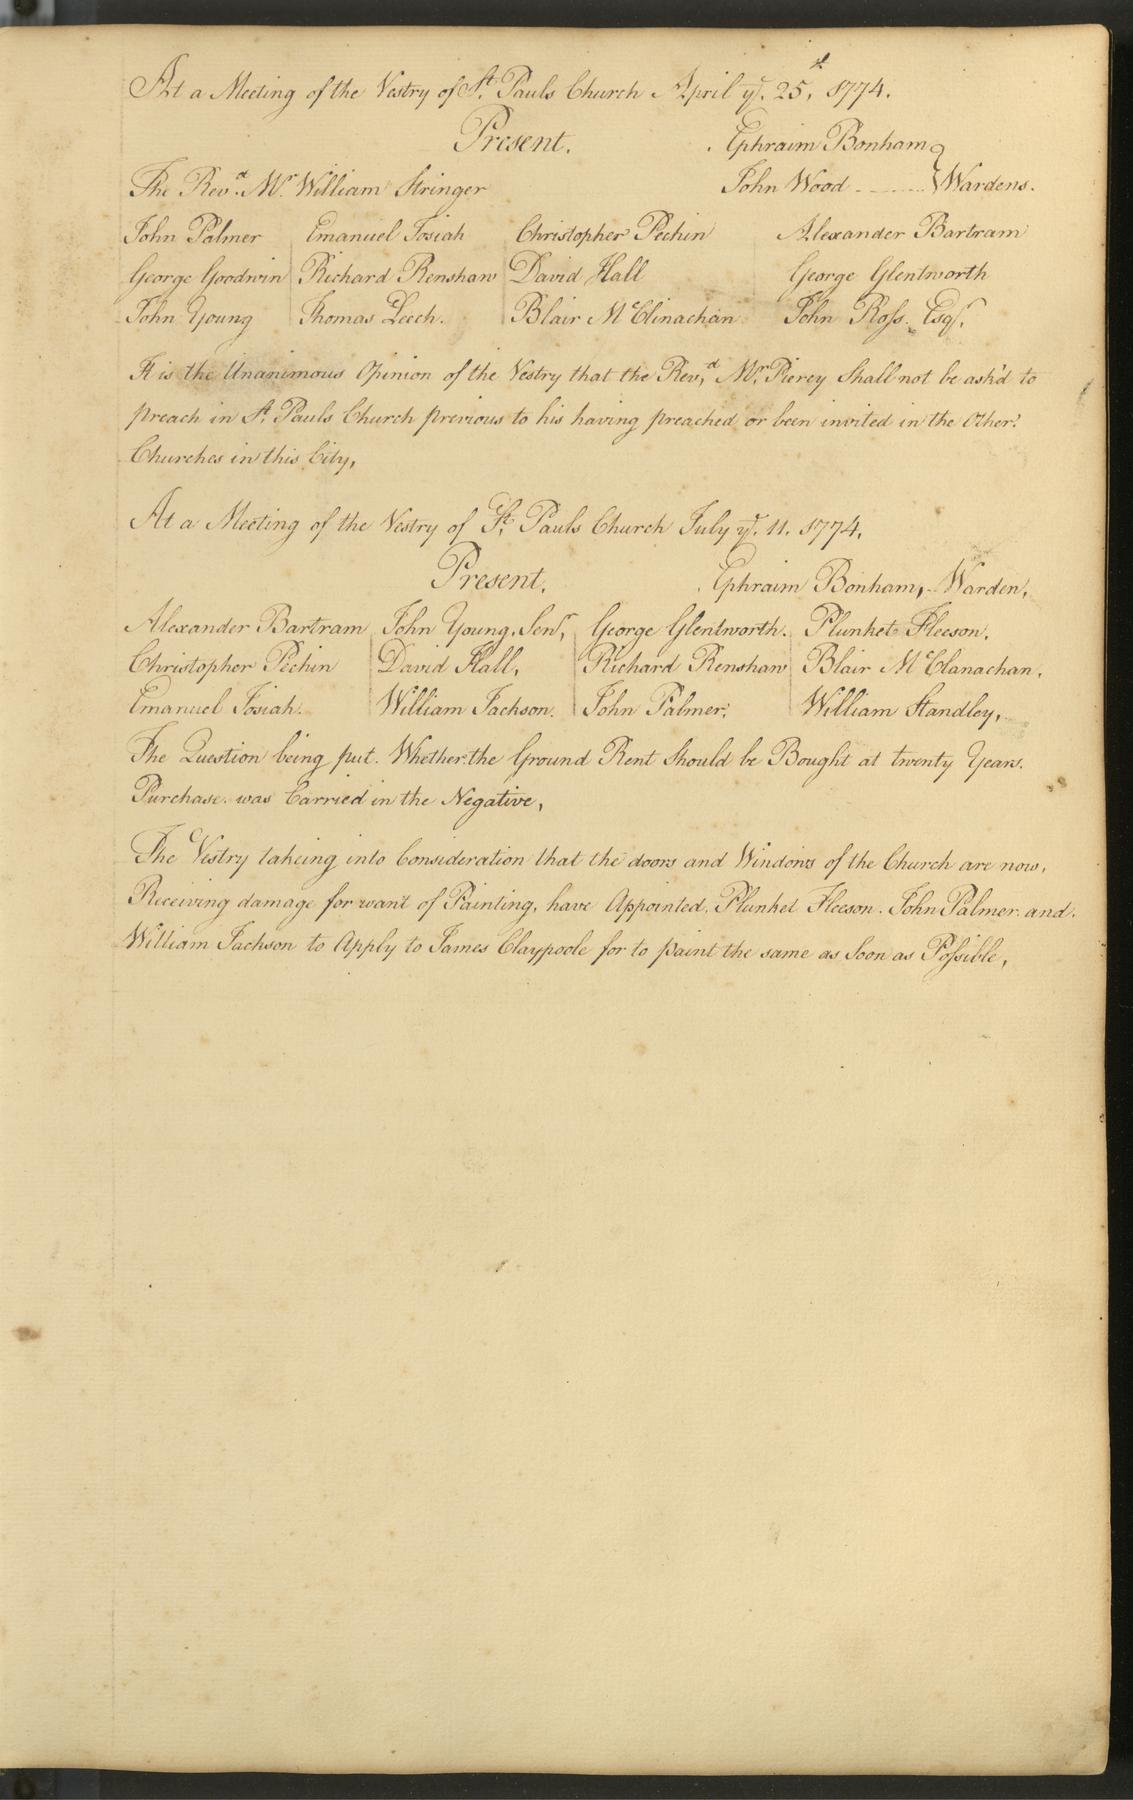 At a Meeting of the Vestry of St. Pauls Church April ye. 25th, 1774.
Present. Ephraim Bonham
The Revd. Mr William Stringer John Wood - - - - } Wardens.
John Palmer Emanuel Josiah Christopher Pechin Alexander Bartram
George Goodwin Richard Renshaw David Hall George Glentworth
John Young Thomas Leech. Blair McClinachan John Ross. Esqr.
It is the Unanimous Opinion of the Vestry that the Revd, Mr. Piercy Shall not be ask'd to
preach in St. Pauls Church previous to his having preached or been invited in the Other
Churches in this City,
At a Meeting of the Vestry of St. Pauls Church July ye. 11. 1774,
Present. Ephraim Bonham, Warden,
Alexander Bartram John Young. Senr, George Glentworth. Plunket Fleeson.
Christopher Pechin David Hall, Richard Renshaw Blair McClanachan.
Emanuel Josiah. William Jackson. John Palmer, William Standley,
The Question being put. Whether the Ground Rent Should be Bought at twenty Years.
Purchase. was Carried in the Negative,
The Vestry takeing into Consideration that the doors and Windows of the Church are now,
Receiving damage for want of Painting, have Appointed. Plunket Fleeson. John Palmer. and.
William Jackson to Apply to James Claypoole for to paint the same as Soon as Possible,